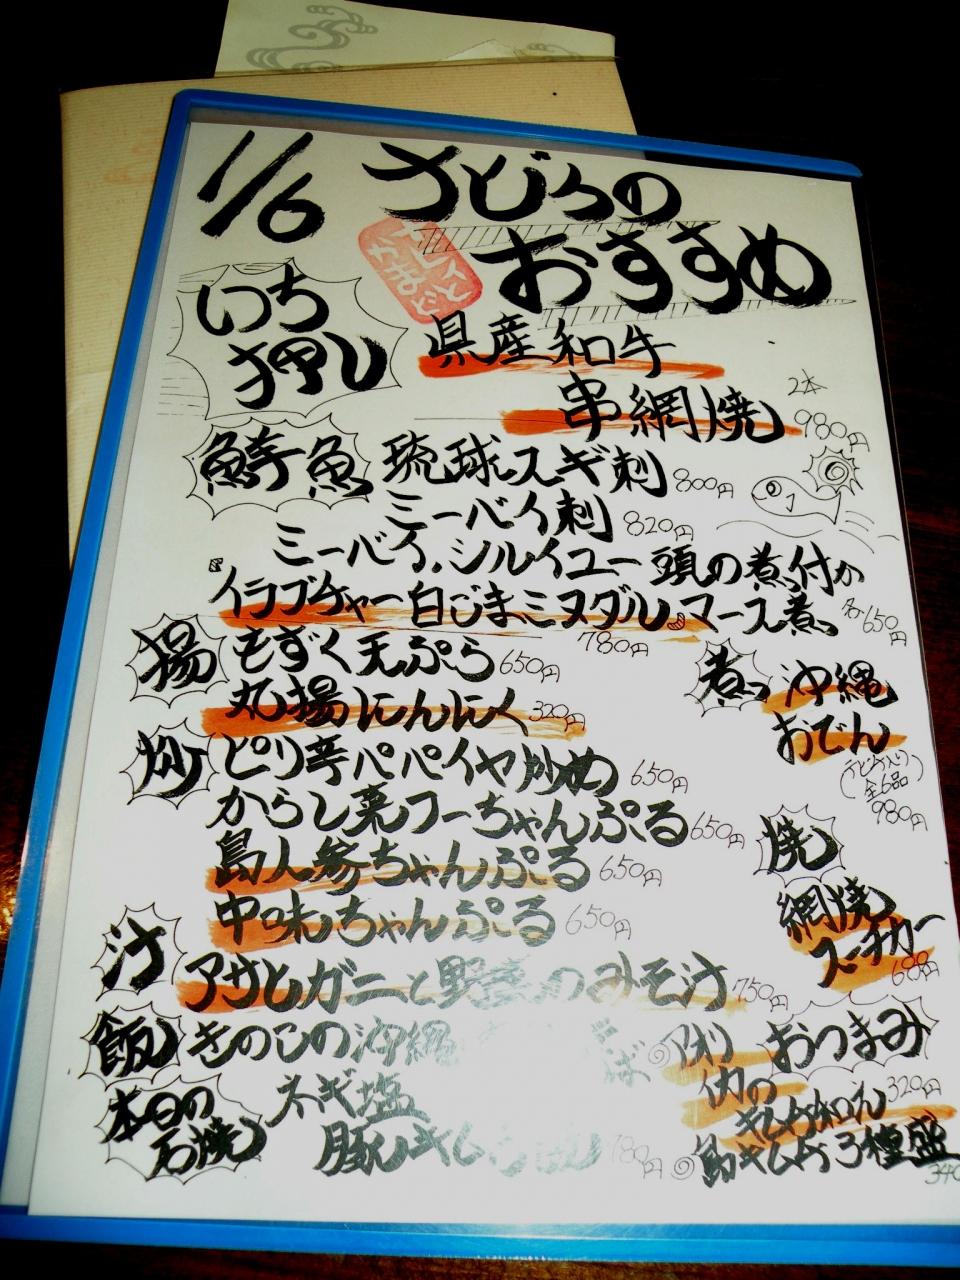 1/6 うどじろの
おすすめ
いち
押し
県産和牛
串網焼 2本 980円
鮮魚 琉球スギ刺 800円
ミーバイ刺 820円
ミーバイ、シルイユー 頭の煮付か
マース煮 各650円
イラブチャー白ごまミヌダル 780円
揚 もずく天ぷら 650円
丸揚にんにく 320円
煮 沖縄
おでん
全6品
980円
炒 ピリ辛パパイヤ炒め 650円
からし菜フーちゃんぷる 650円
島人参ちゃんぷる 650円
中味ちゃんぷる 650円
焼 網焼
スーチカー
680円
汁 アサヒガニと野菜のみそ汁 750円
飯 きのこの沖縄
本日の
石焼
ネギ塩
豚キム 780円
おつまみ
肉の
キムチ和え 320円
島キムチ3種盛
340